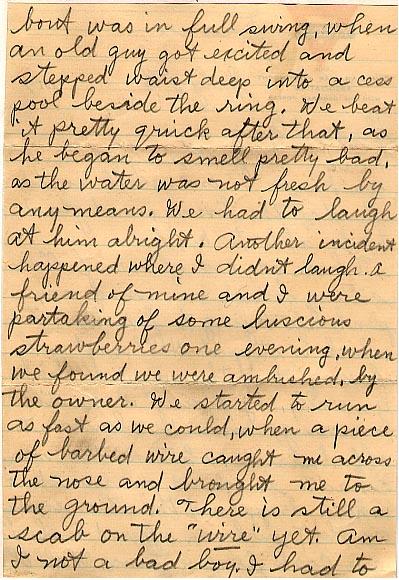 bout was in full swing, when
an old guy got excited and
stepped waist deep into a cess
pool beside the ring. We beat
it pretty quick after that, as
he began to smell pretty bad,
as the water was not fresh by
any means. We had to laugh
at him alright. Another incident
happened where I didn't laugh. A
friend of mine and I were
partaking of some luscious
strawberries one evening, when
we found we were ambushed, by
the owner. We started to run
as fast as we could, when a piece
of barbed wire caught me across
the nose and brought me to
the ground. There is still a
scab on the "wire" yet. Am
I not a bad boy. I had to